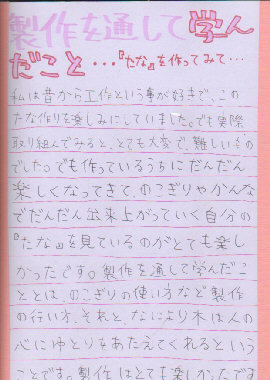 製作を通して学ん
だこと…『たな』を作ってみて…
私は昔から工作という事が好きで、この
たな作りを楽しみにしていました。でも実際、
取り組んでみると、とても大変で、難しいもの
でした。でも作っているうちにだんだん
楽しくなってきて、のこぎりやかんな
でだんだん出来上がっていく自分の
『たな』を見ているのがとても楽し
かったです。製作を通して学んだこ
ととは、のこぎりの使い方など製作
の行い方、それと、なにより木は人の
心にゆとりをあたえてくれるという
ことです。製作はとても楽しかったです